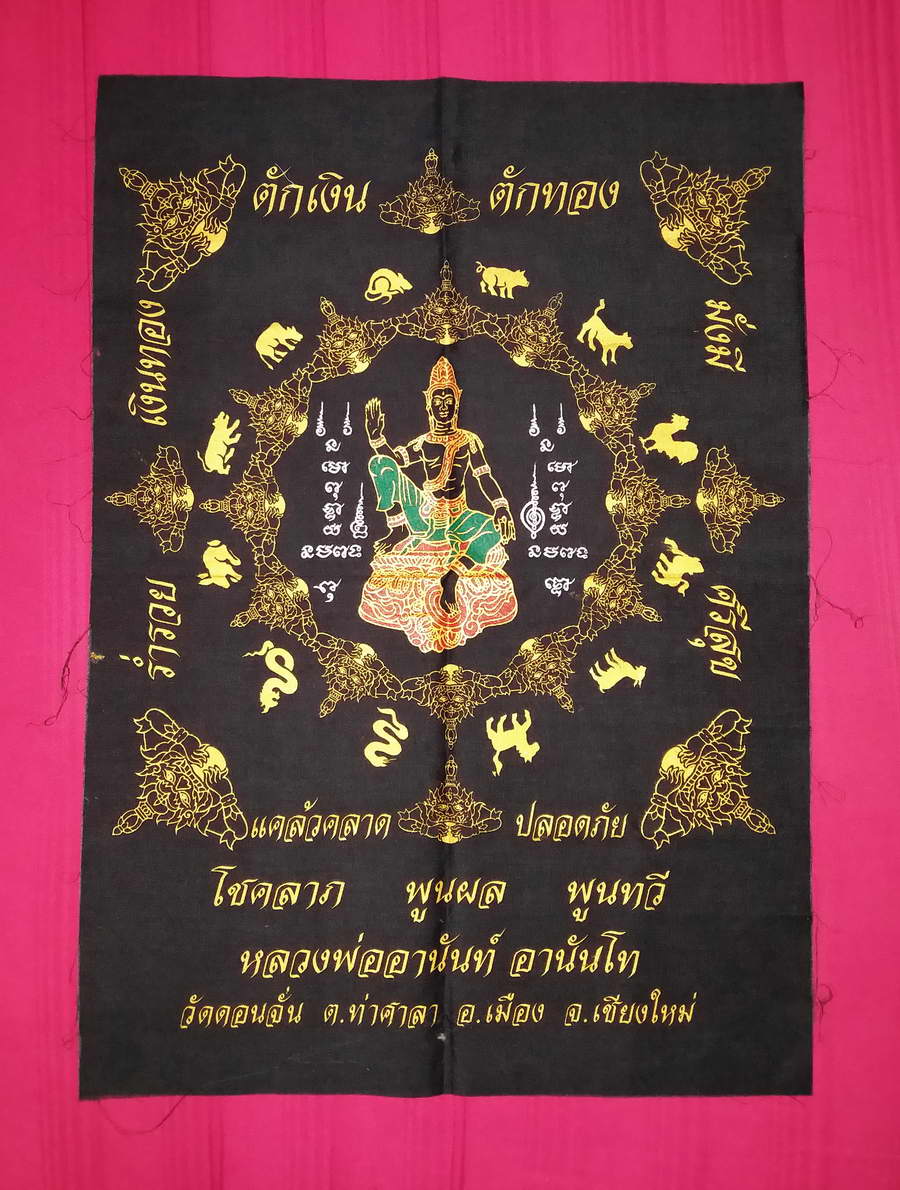 ตักเงิน ตักทอง
เงินทอง
มั่งมี
ร่ำรวย
ศิริสุข
แคล้วคลาด ปลอดภัย
โชคลาภ พูนผล พูนทวี
หลวงพ่ออานันท์ อานันโท
วัดดอนจั่น ต.ท่าศาลา อ.เมือง จ.เชียงใหม่